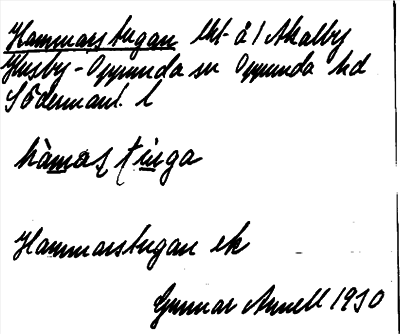 Hammarstugan lht å 1 Akalby
Husby-Oppunda sn Oppunda hd
Södermanl. l
hàmaʂtinga
Hammarstugan ek
Gunnar Arnell 1930